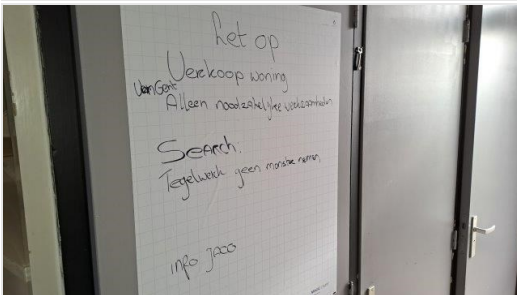 Let op
Verkoop woning
Van Gent
Alleen noodzakelijke werkzaamheden
Search.
Tegelwerk geen monster nemen
info Jaco